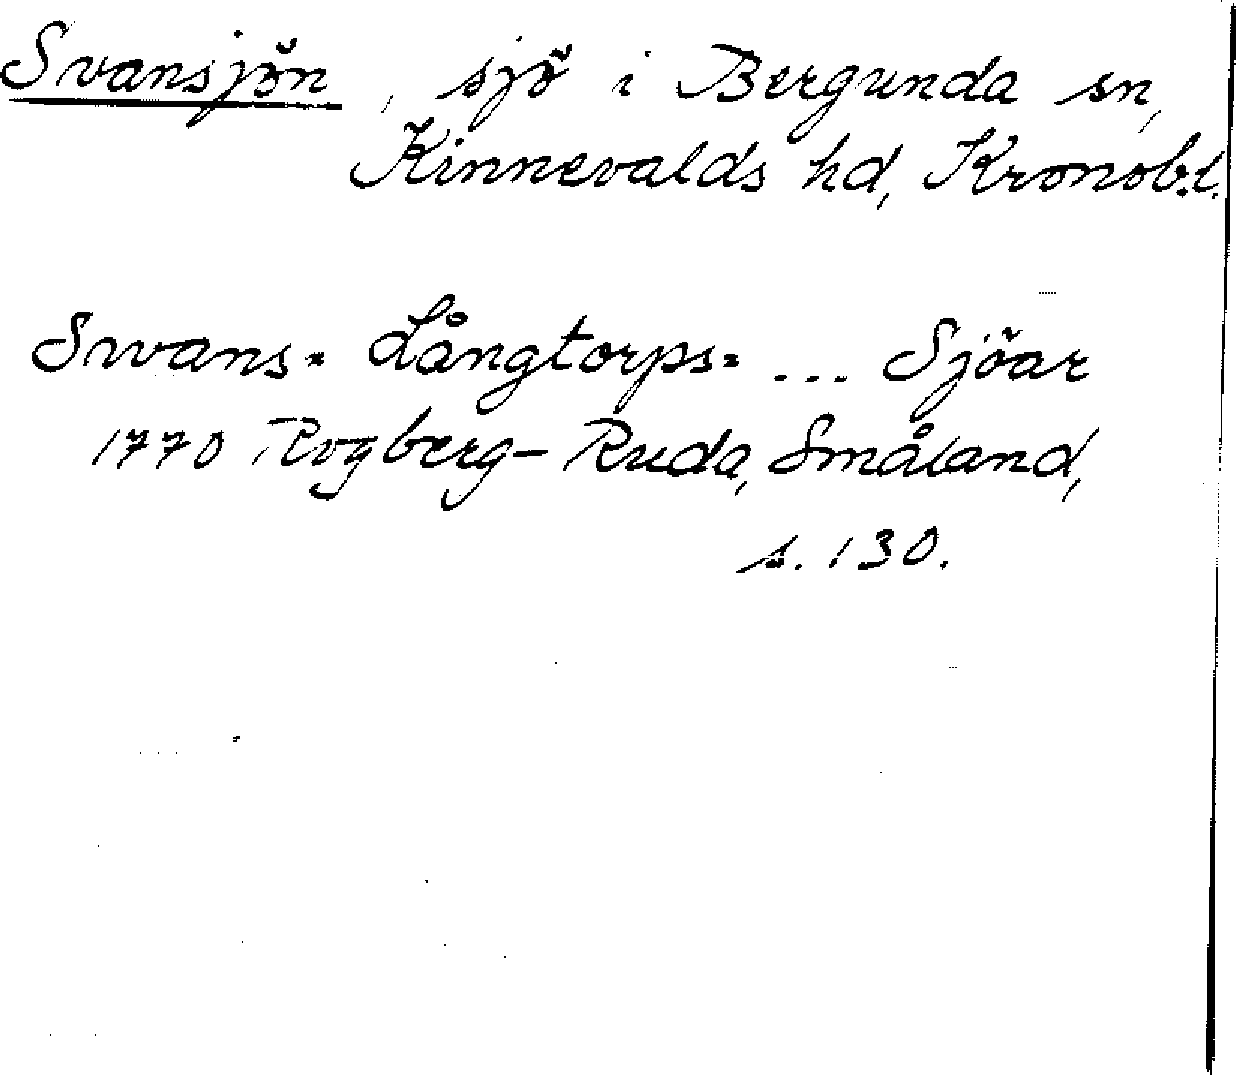 Svansjön, sjö i Bergunda sn,
Kinnevalds hd, Kronob.l.
Swans= Långtorps= ... Sjöar
1770 Rogberg-Ruda, Småland,
s. 130.